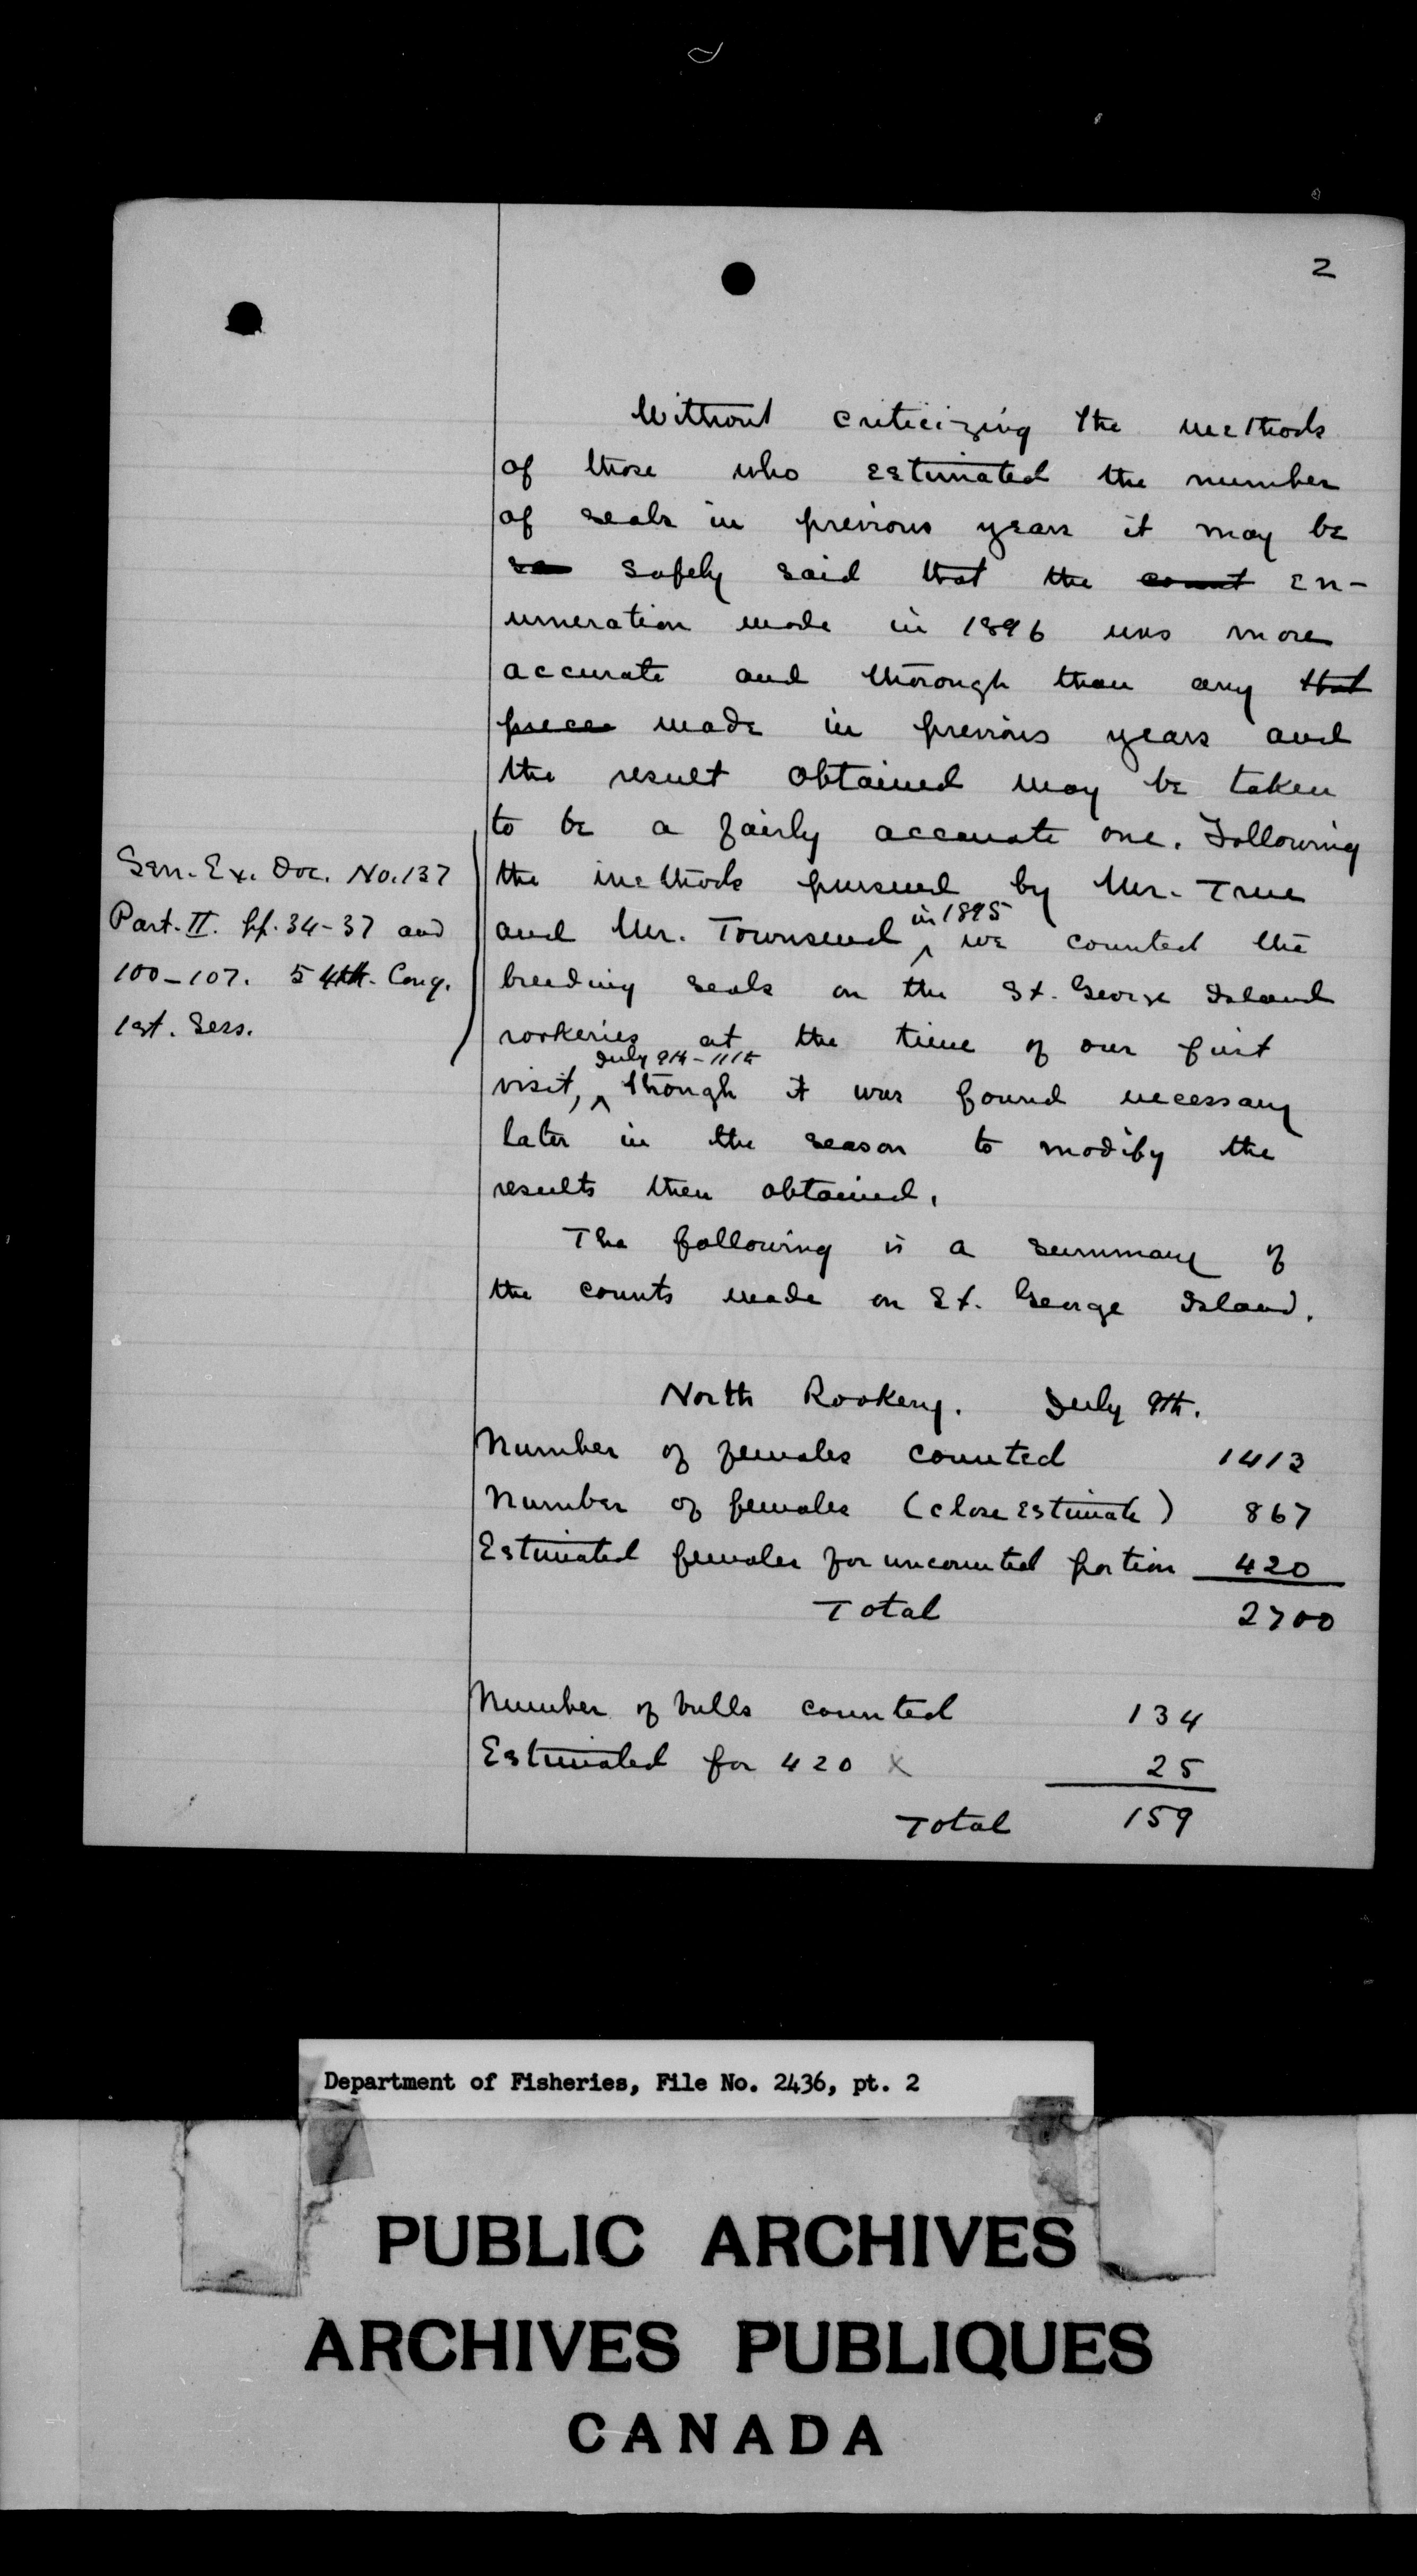 2
Without criticizing the methods
of those who estimated the number
of seals in previous years it may be
sa safely said that the count en-
umeration made in 1896 was more
accurate and thorough than any that
preced made in previous years and
the result obtained may be taken
to be a fairly accurate one. Following
the methods pursued by Mr. True
and Mr. Townsend in 1895 we counted the
breeding seals on the St. George Island
rookeries at the time of our first
visit, July 9th-11th though it was found necessary
later in the season to modify the
results then obtained.
The following is a summary of
the counts made on St. George Island.
Sen. Ex. Doc. No. 137
Part. II. pp. 34-37 and
100-107. 54th. Cong.
1st. Sess.
North Rookery. July 9th.
Number of females counted 1413
Number of females (close estimate) 867
Estimated females for uncounted portion 420
Total 2700
Number of bulls counted 134
Estimated for 420 x 25
Total 159
Department of Fisheries, File No. 2436, pt. 2
PUBLIC ARCHIVES
ARCHIVES PUBLIQUES
CANADA